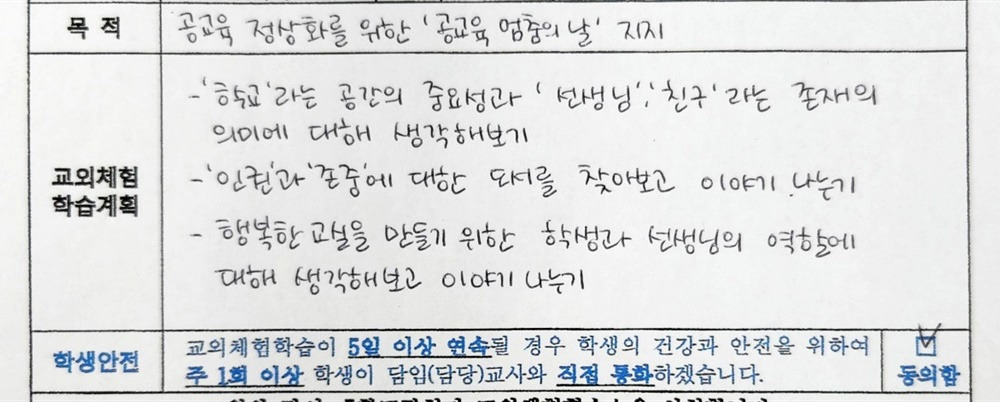 목 적
공교육 정상화를 위한 '공교육 멈춤의 날' 지지
- '학교'라는 공간의 중요성과 '선생님', '친구'라는 존재의
의미에 대해 생각해보기
교외체험
학습계획
- '인권'과 '존중'에 대한 도서를 찾아보고 이야기 나누기
- 행복한 교실을 만들기 위한 학생과 선생님의 역할에
대해 생각해보고 이야기 나누기
학생안전
교외체험학습이 5일 이상 연속될 경우 학생의 건강과 안전을 위하여
주 1회 이상 학생이 담임(담당)교사와 직접 통화하겠습니다.
동의함